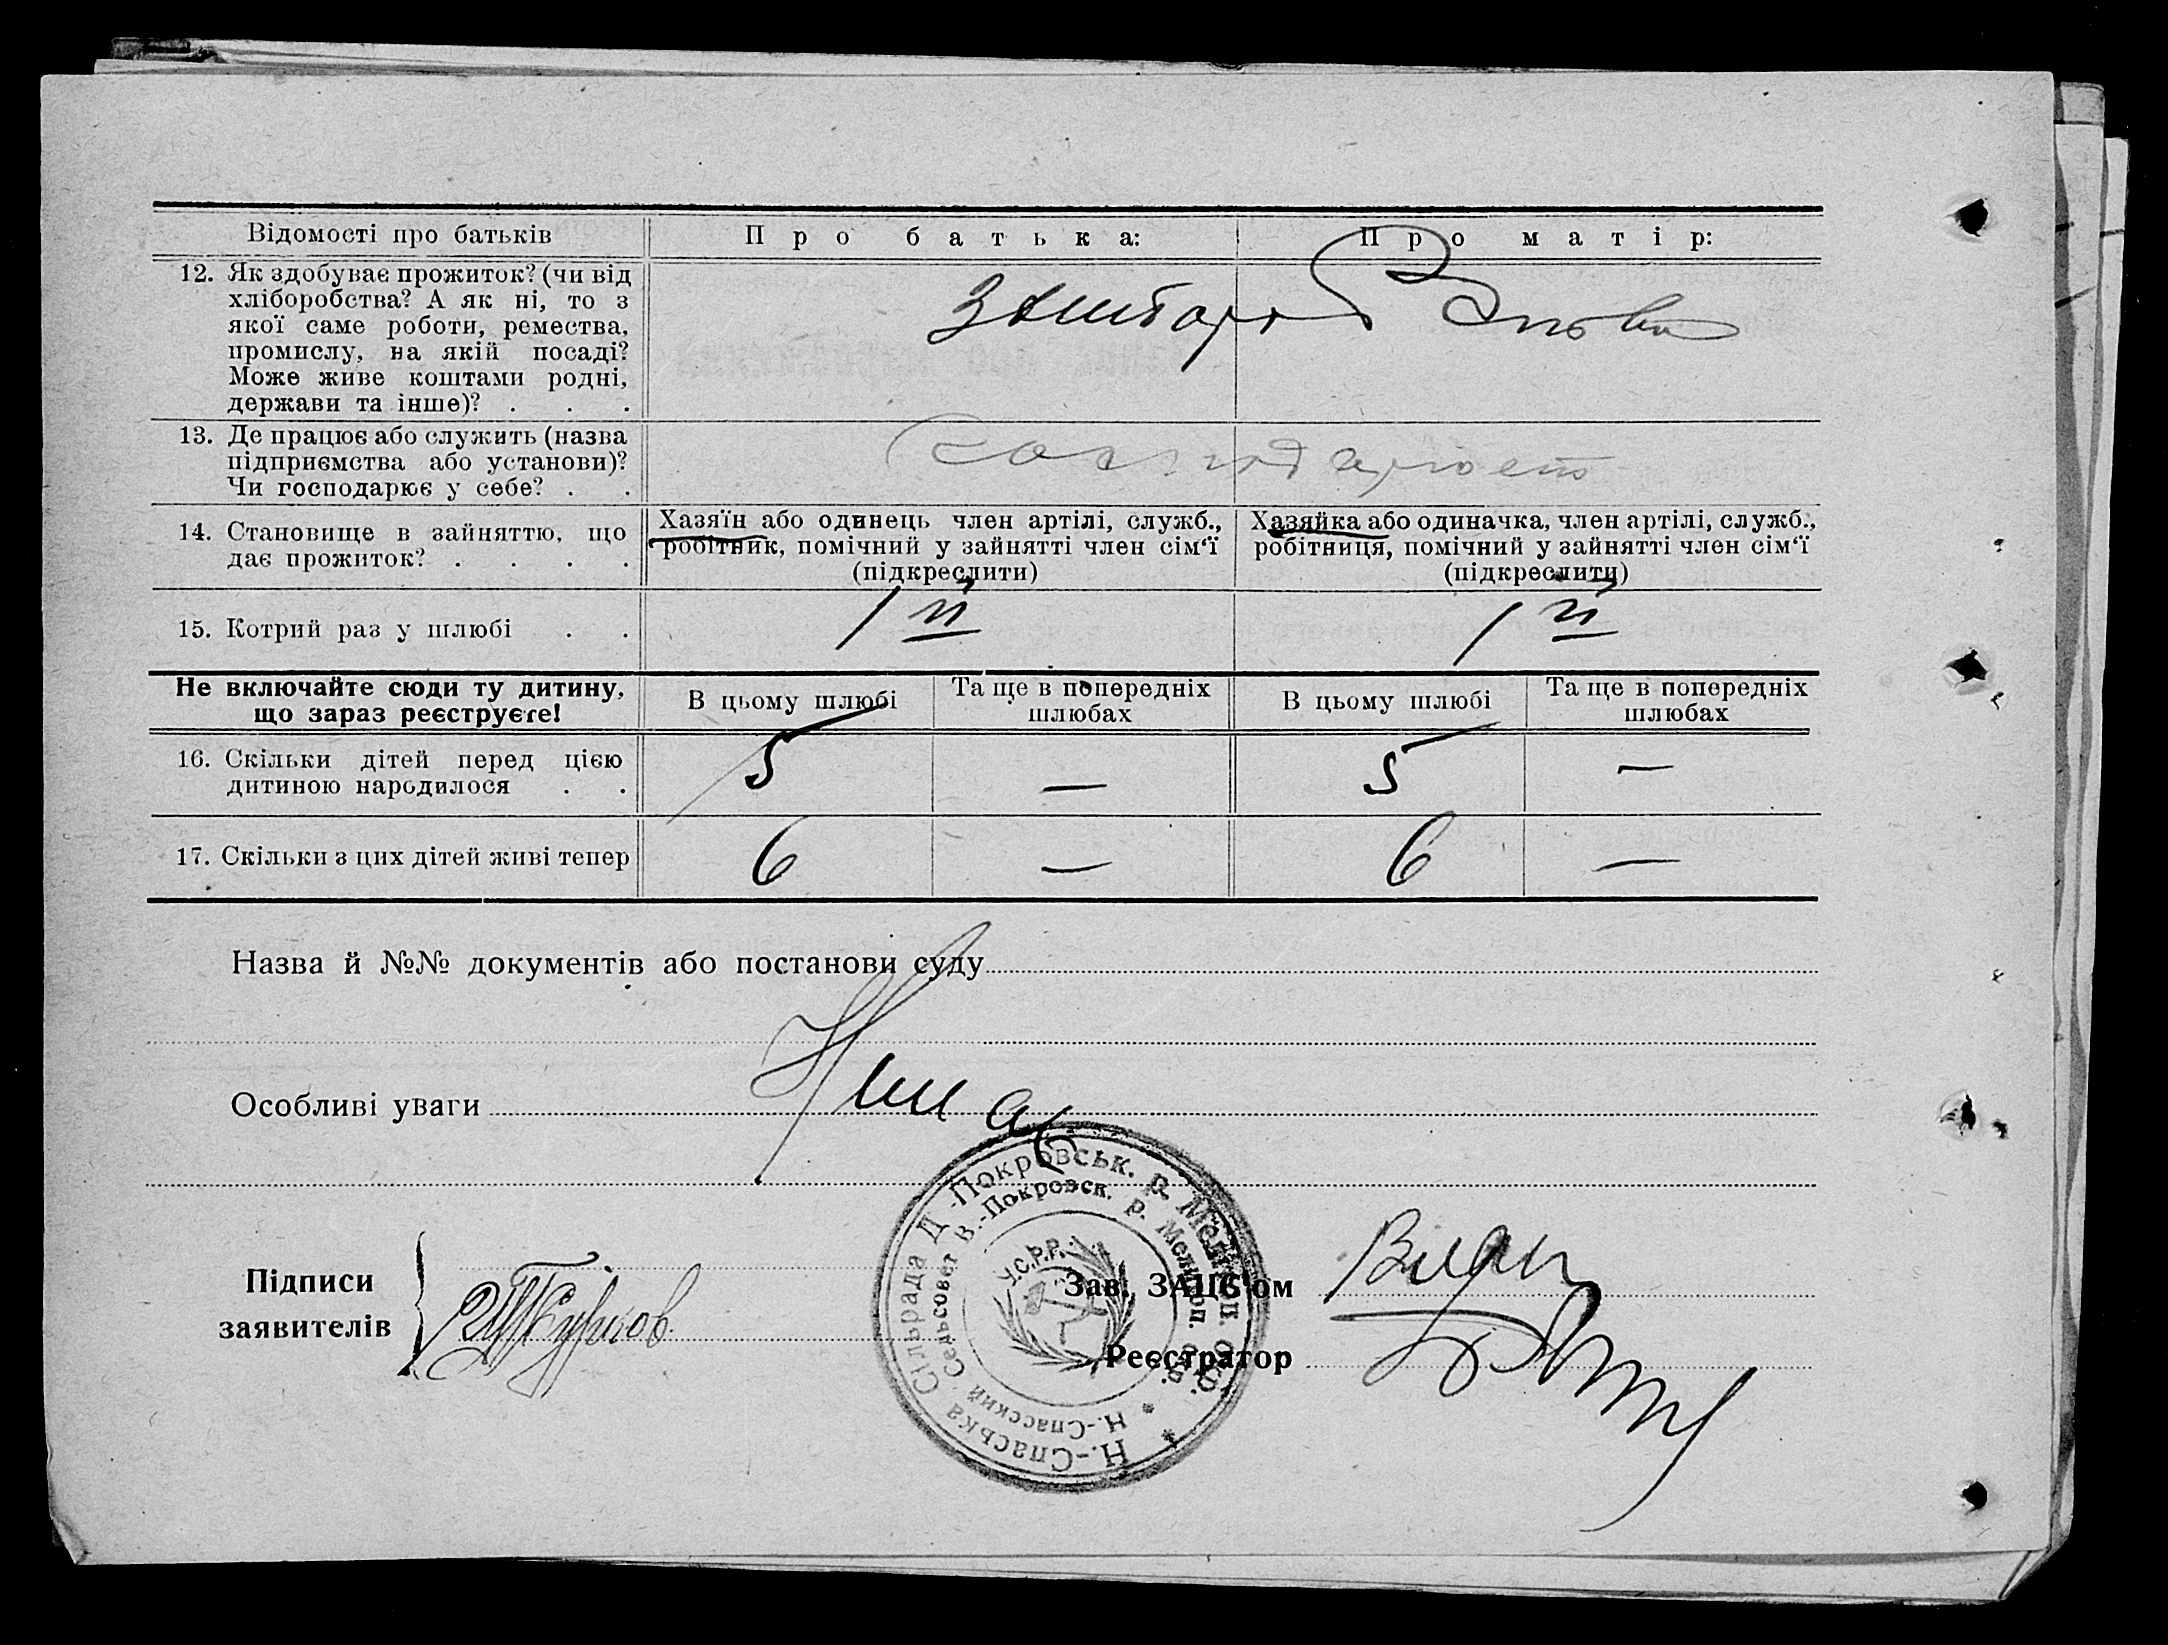 Відомості про батьків
Про батька:
Про матір:
12. Як здобуває прожиток? (чи від
хліборобства? А як ні, то з
якої саме роботи, ремества,
промислу, на якій посаді?
Може живе коштами родні,
держави та інше)? . . .
13. Де працює або служить (назва
підприємства або установи)?
Чи господарює у себе? . .
14. Становище в зайняттю, що
дає прожиток? . . . .
Хазяїн або одинець член артілі, служб.,
робітник, помічний у зайнятті член сім'ї
(підкреслити)
Хазяйка або одиначка, член артілі, служб.,
робітниця, помічний у зайнятті член сім'ї
(підкреслити)
15. Котрий раз у шлюбі . .
1й
1й
Не включайте сюди ту дитину,
що зараз реєструєте!
В цьому шлюбі
Та ще в попередніх
шлюбах
В цьому шлюбі
Та ще в попередніх
шлюбах
16. Скільки дітей перед цією
дитиною народилося . .
5 — 5 —
17. Скільки з цих дітей живі тепер
6 — 6 —
Назва й №№ документів або постанови суду
Особливі уваги
Підписи
заявителів
Зав. ЗАЦС'ом
Реєстратор
Н.-Спаська Сільрада Д.-Покровськ. р. Мелітоп. Окр.
Н.-Спасский Сельсовет В.-Покровск. р. Мелитоп. окр.
У.С.Р.Р.